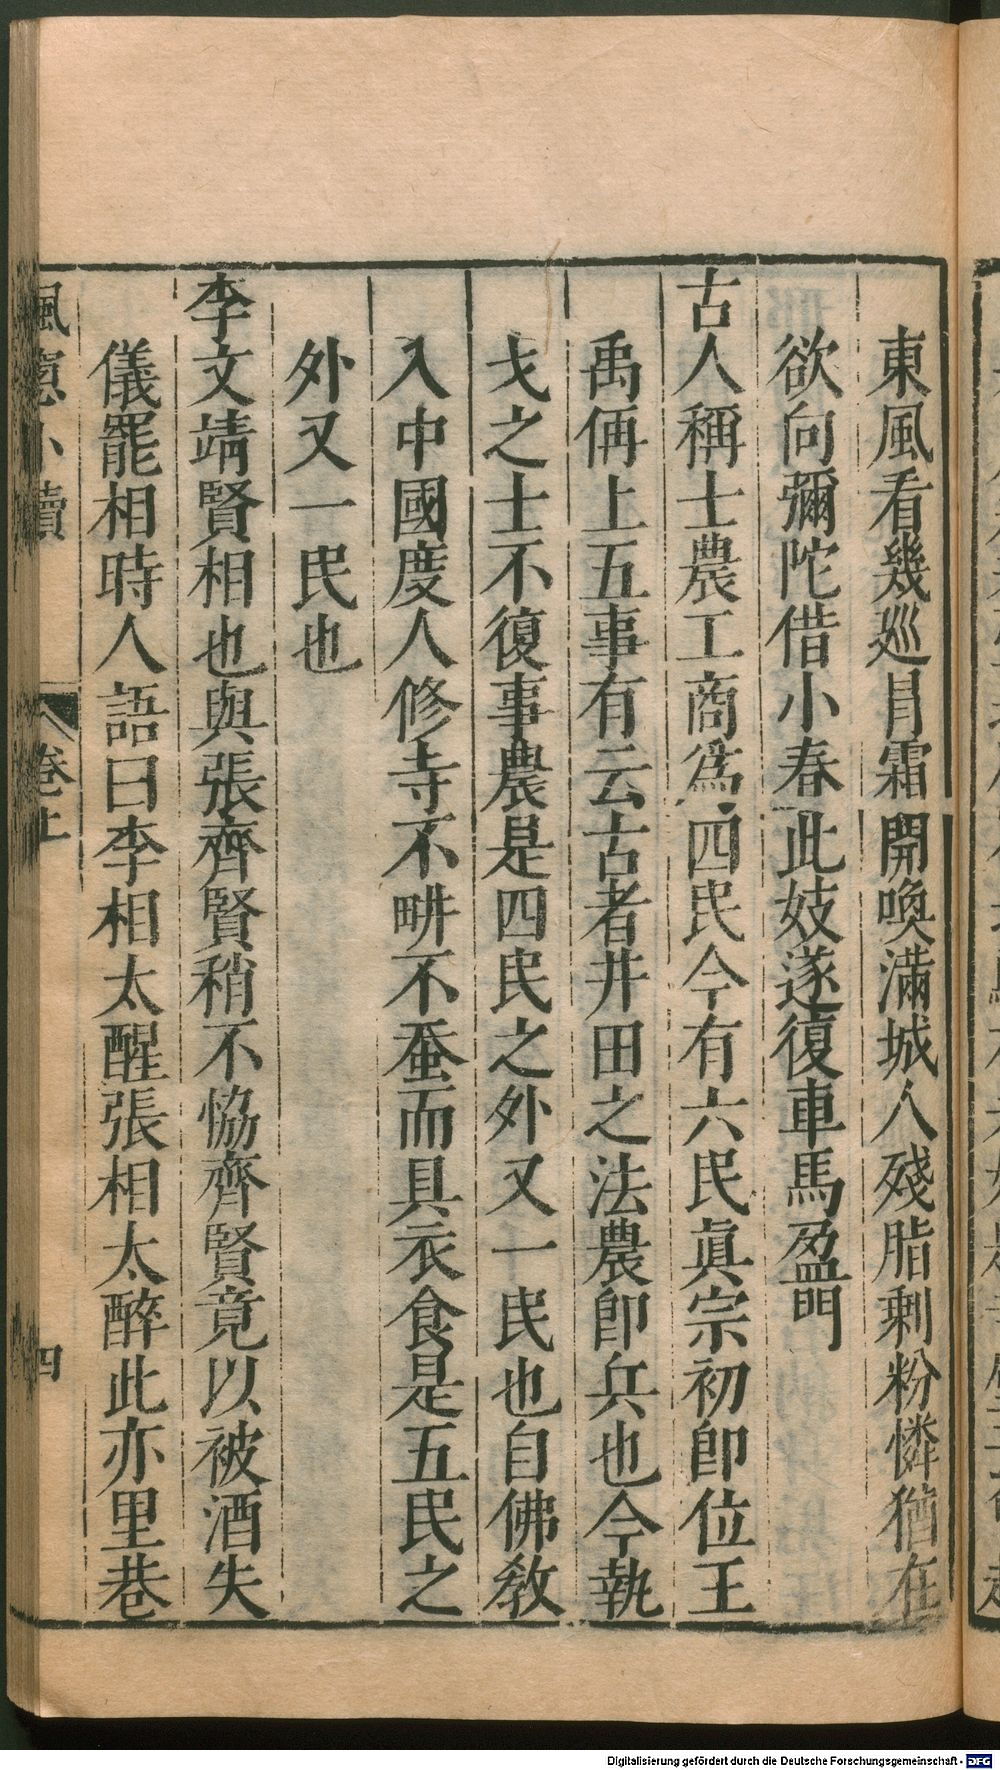 東風看幾巡冐霜開喚滿城人殘脂剩粉憐猶在
欲向彌陀借小春此妓遂復車馬盈門
古人稱士農工商爲四民今有六民眞宗初卽位王
禹偁上五事有云古者井田之法農卽兵也今執
戈之士不復事農是四民之外又一民也自佛敎
入中國度人修寺不畊不蚕而具衣食是五民之
外又一民也
李文靖賢相也與張齊賢稍不恊齊賢竟以被酒失
儀罷相時人語曰李相太醒張相太醉此亦里巷
卷上
四
Digitalisierung gefördert durch die Deutsche Forschungsgemeinschaft - DFG